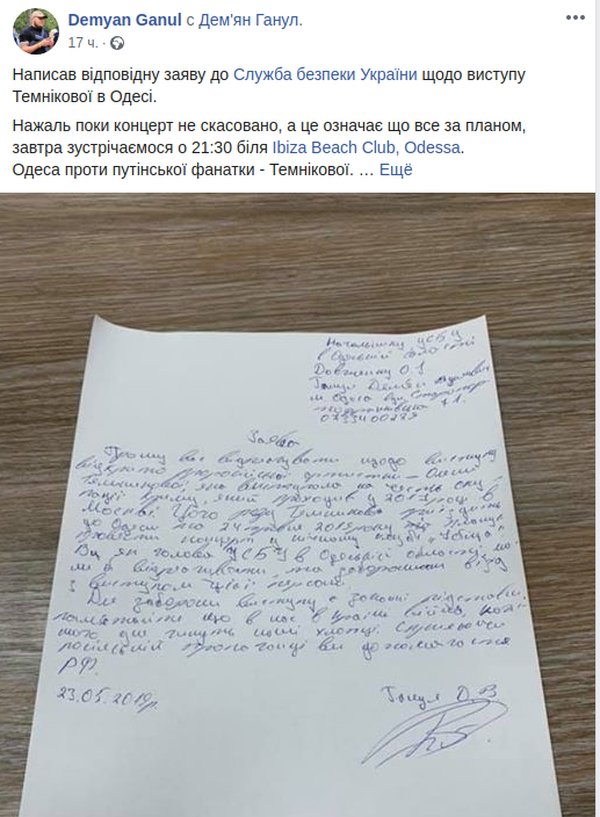 Demyan Ganul с Дем'ян Ганул.
17 ч. ·
Написав відповідну заяву до Служба безпеки України щодо виступу
Темнікової в Одесі.
Нажаль поки концерт не скасовано, а це означає що все за планом,
завтра зустрічаємося о 21:30 біля Ibiza Beach Club, Odessa.
Одеса проти путінської фанатки - Темнікової. … Ещё
Начальнику УСБУ
в Одеській області
Довженку О.І
Ганул Демян
м. Одеса вул.
Заява
Прошу вас відреагувати щодо виступу
відкрито артистки – Олени
Темнікової яка виступала на честь оку-
пації Криму, який проходив у році в
Москві. Цього року Темнікова приїздить
до Одеси на 24 травня 2019 року
провести концерт у нічному клубі "Ібіца"
Ви як голова УСБУ в Одеській області мо-
же відреагувати та заборонити в'їзд
з виступом цієї персони.
Для заборони виступу є законні підстави.
памʼятайте що в нас в країні війна, кож-
ного дня гинуть наші хлопці.
російській пропаганді ви допомагаєте
РФ.
23.05.2019р. Ганул Д.В